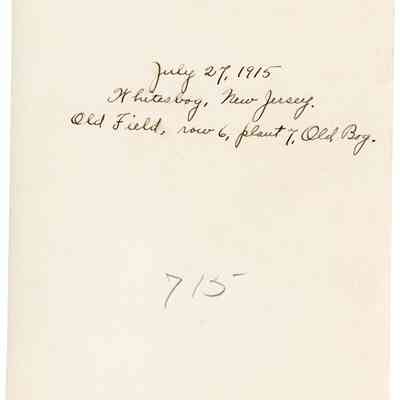 July 27, 1915
Whitesbog, New Jersey.
Old Field, row 6, plant 7, Old Bog.
715